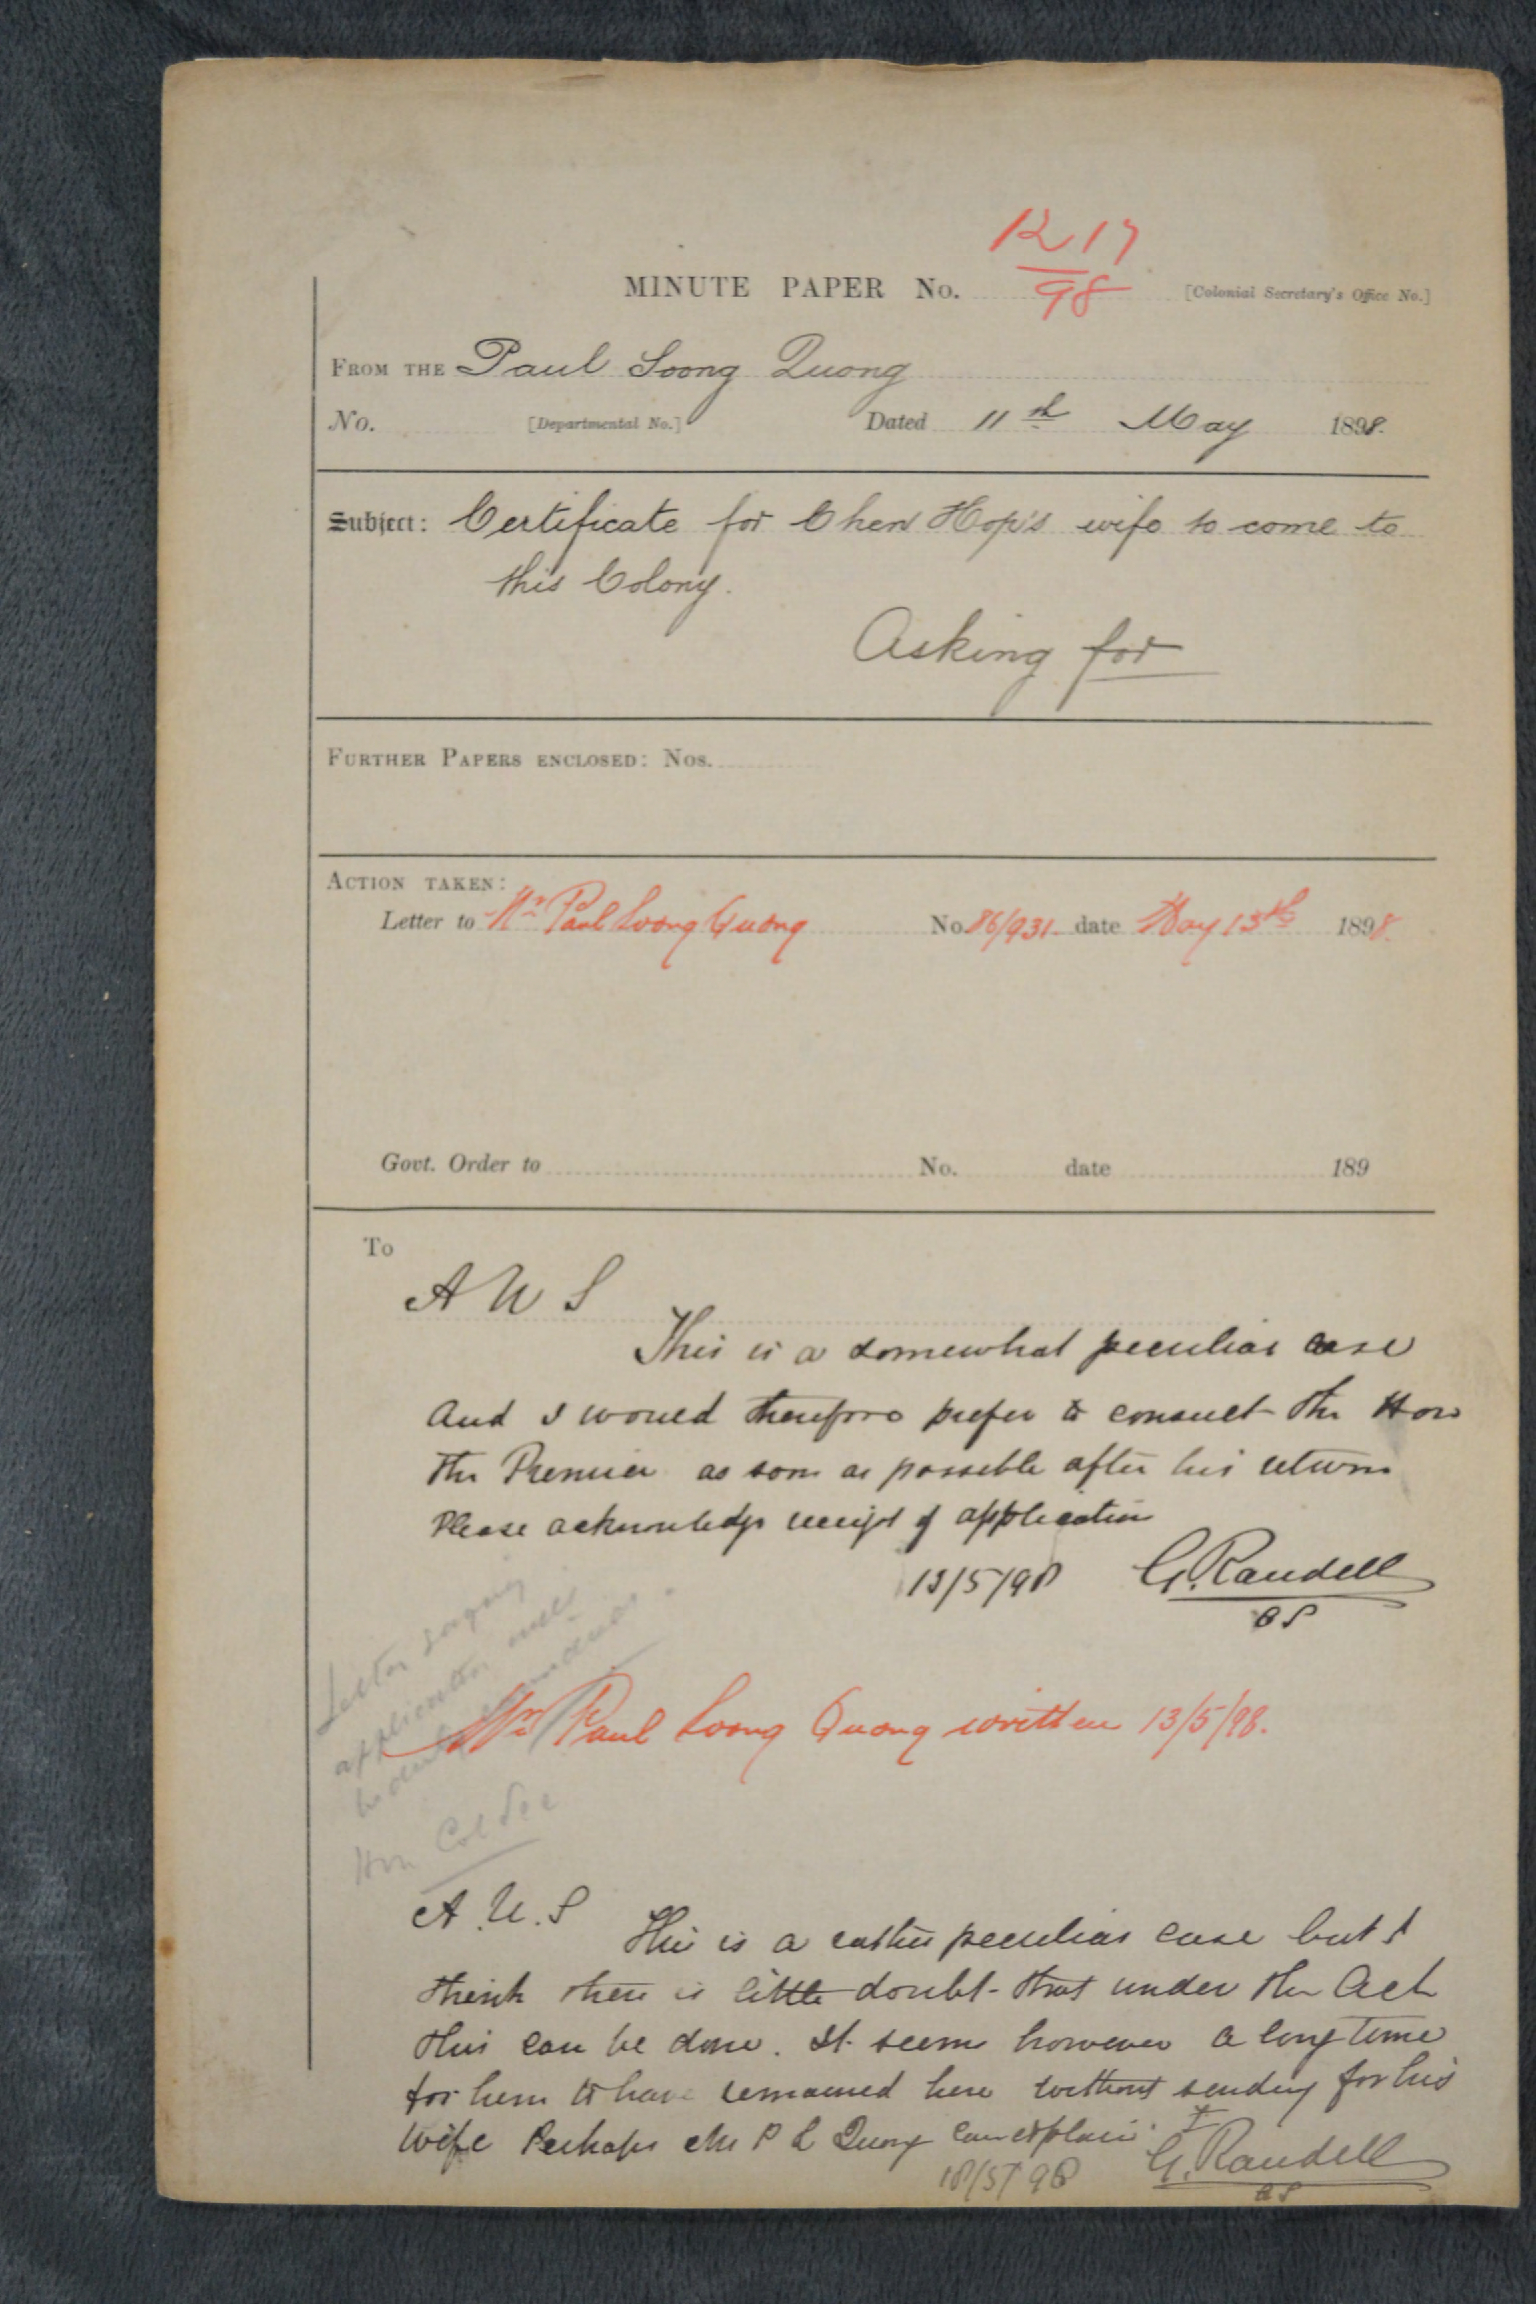 1217
98
MINUTE PAPER No. [Colonial Secretary's Office No.]
FROM THE Paul Soong Quong
No. [Departmental No.] Dated 11th May 1898.
Subject: Certificate for Chen Hop's wife to come to
this Colony.
Asking for
FURTHER PAPERS ENCLOSED: Nos.
ACTION TAKEN:
Letter to Mr Paul Soong Quong No. 86/931. date May 13th 1898.
Govt. Order to No. date 189
To
A U S
This is a somewhat peculiar case
and I would therefore prefer to consult the Hon
the Premier as soon as possible after his return
Please acknowledge receipt of application
13/5/98 G. Randell
CS
Letter saying
application will
be dealt
Mr Paul Soong Quong written 13/5/98.
Hon Col Sec
A.U.S This is a rather peculiar case but I
think there is little doubt that under the Act
this can be done. It seems however a long time
for him to have remained here without sending for his
wife Perhaps Mr P L Quong can explain.
18/5/98 G. Randell
CS